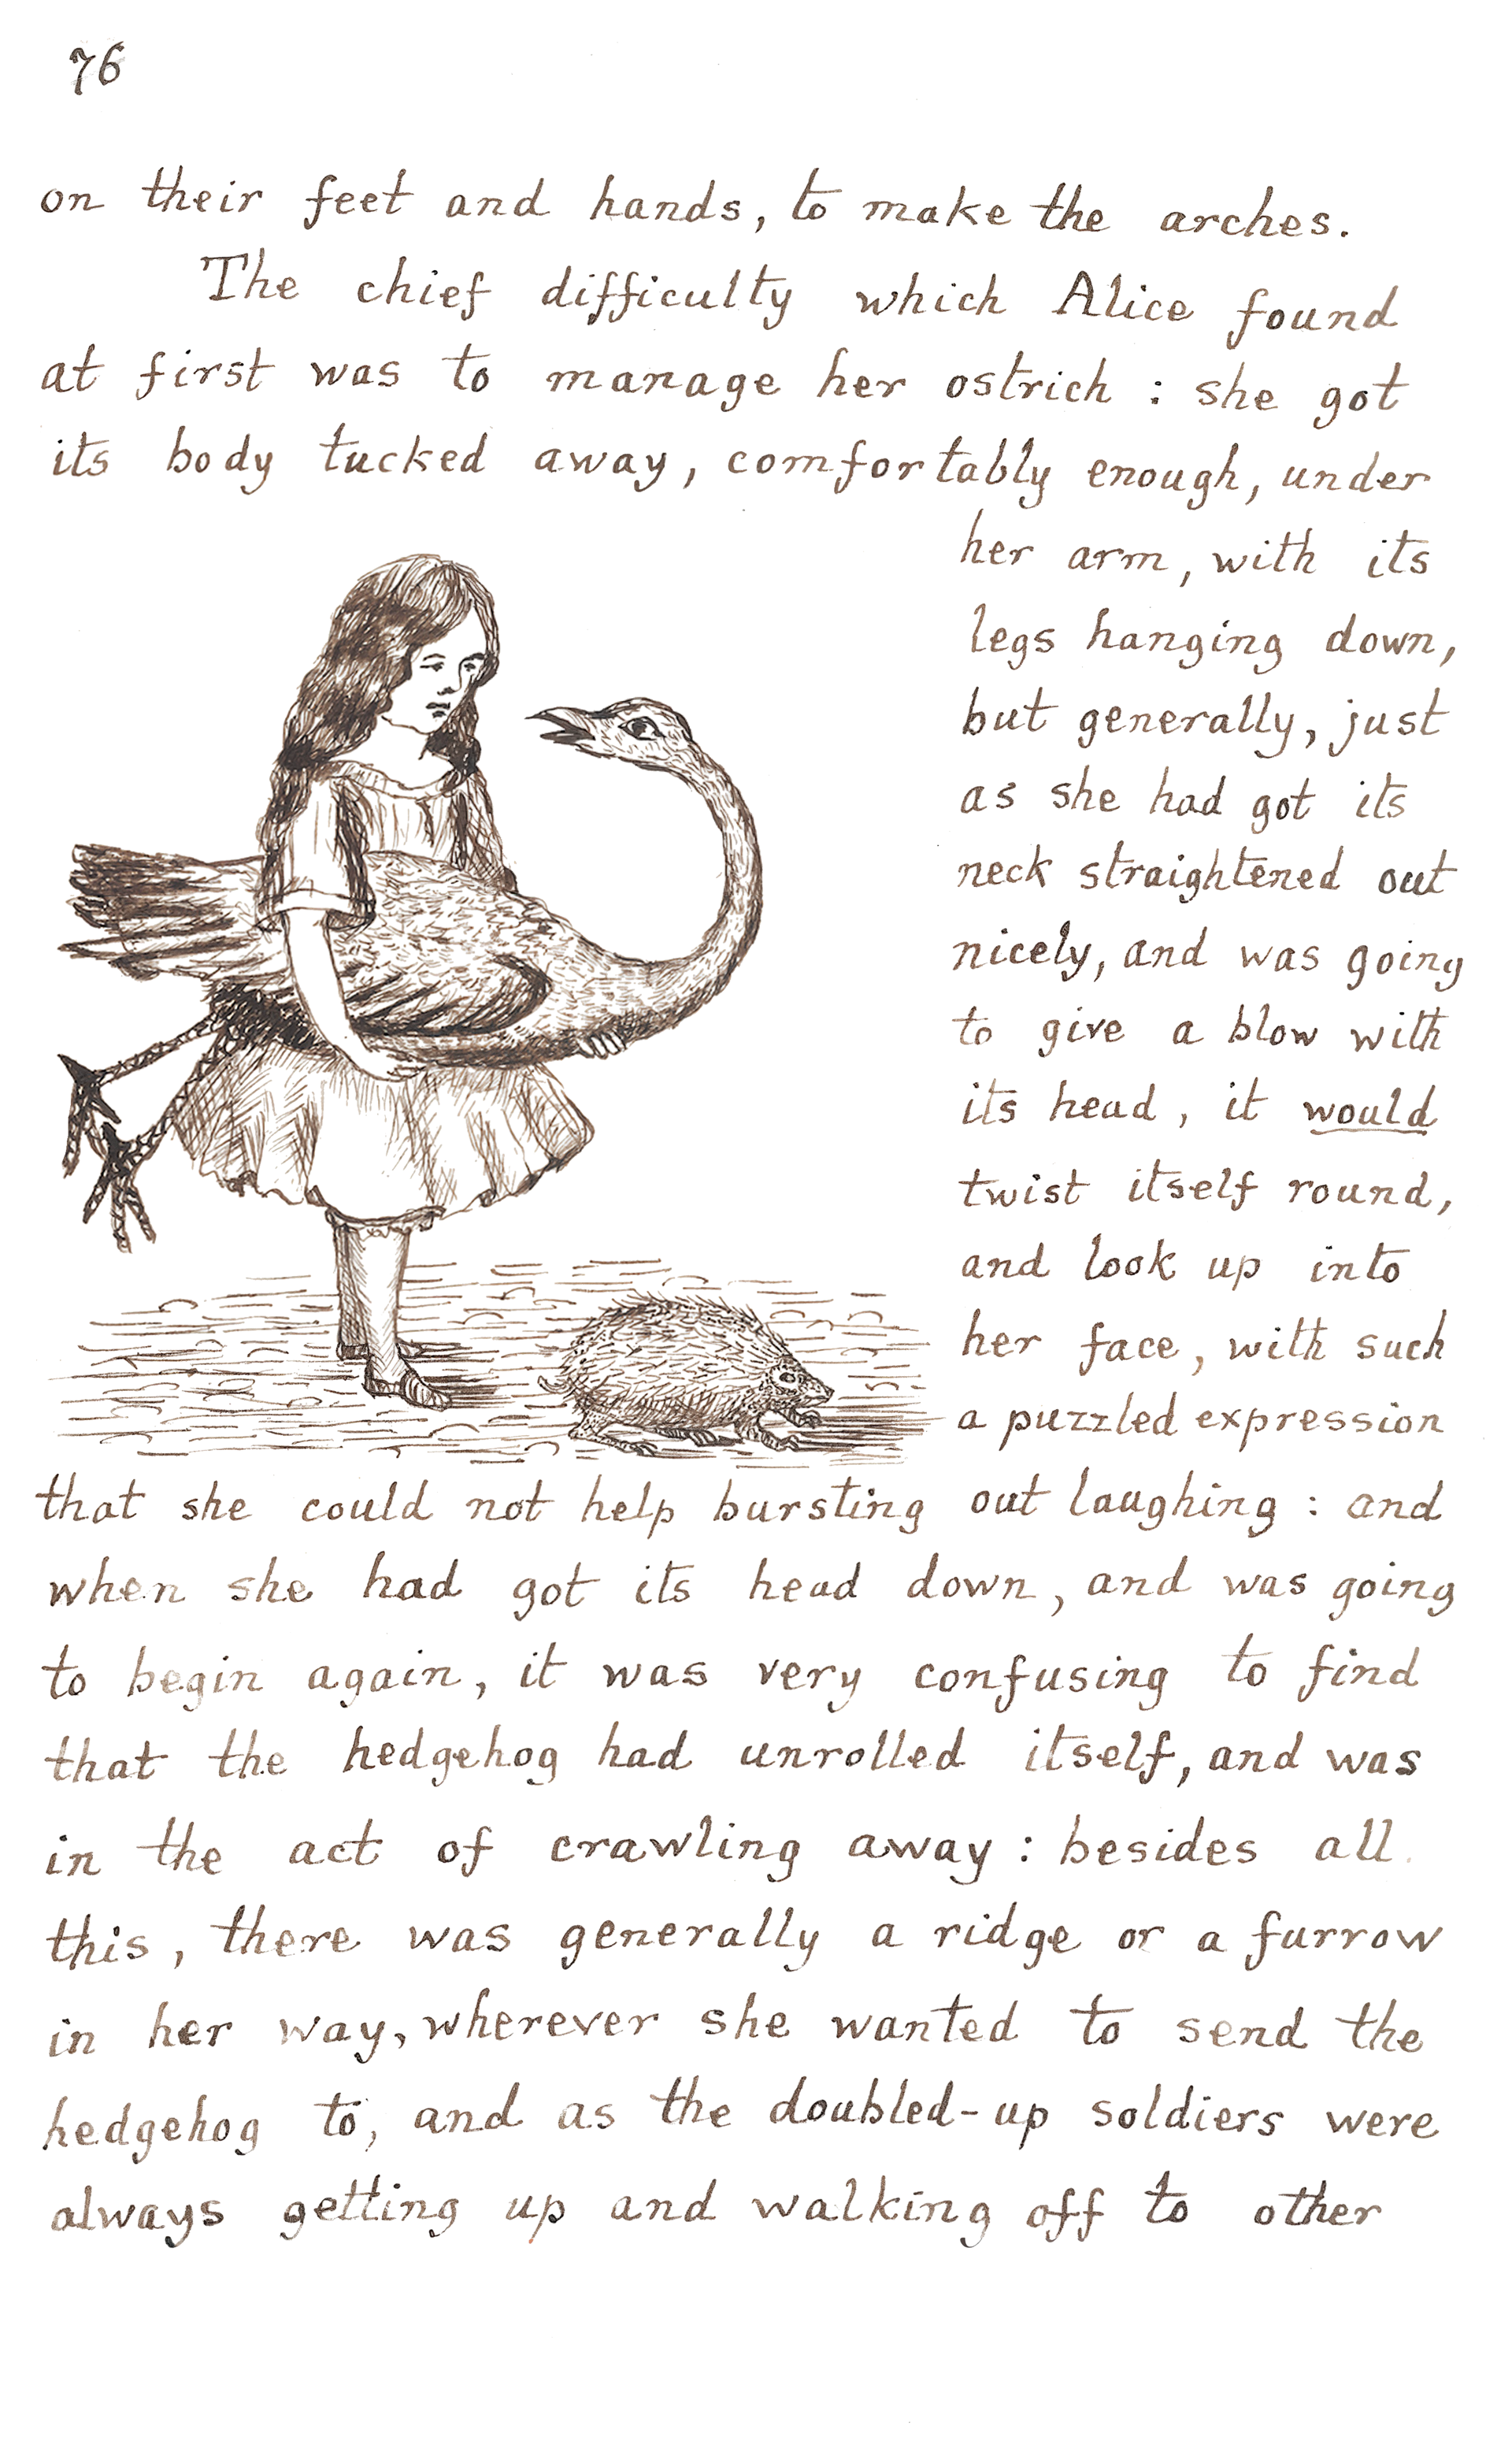 76
on their feet and hands, to make the arches.
The chief difficulty which Alice found
at first was to manage her ostrich : she got
its body tucked away, comfortably enough, under
her arm, with its
legs hanging down,
but generally, just
as she had got its
neck straightened out
nicely, and was going
to give a blow with
its head, it would
twist itself round,
and look up into
her face, with such
a puzzled expression
that she could not help bursting out laughing : and
when she had got its head down, and was going
to begin again, it was very confusing to find
that the hedgehog had unrolled itself, and was
in the act of crawling away : besides all
this, there was generally a ridge or a furrow
in her way, wherever she wanted to send the
hedgehog to, and as the doubled-up soldiers were
always getting up and walking off to other